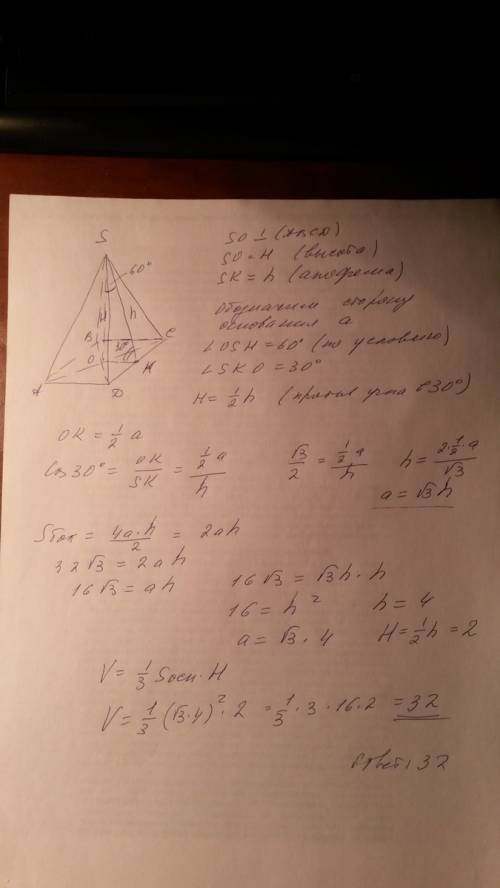 S
60°
H
h
B
C
30°
O
H
A
D
SO ⊥ (ABCD)
SO = H (высота)
SK = h (апофема)
Обозначим сторону
основания a
∠OSH = 60° (по условию)
∠SKO = 30°
H = 1/2 h (против угла в 30°)
OK = 1/2 a
Cos 30° = OK/SK = (1/2 a)/h
√3/2 = (1/2 a)/h
h = (2·1/2·a)/√3
a = √3 h
Sбок = (4a·h)/2 = 2ah
32√3 = 2ah
16√3 = ah
16√3 = √3h·h
16 = h²
h = 4
a = √3·4
H = 1/2 h = 2
V = 1/3 Sосн·H
V = 1/3 (√3·4)²·2 = 1/3·3·16·2 = 32
Ответ: 32